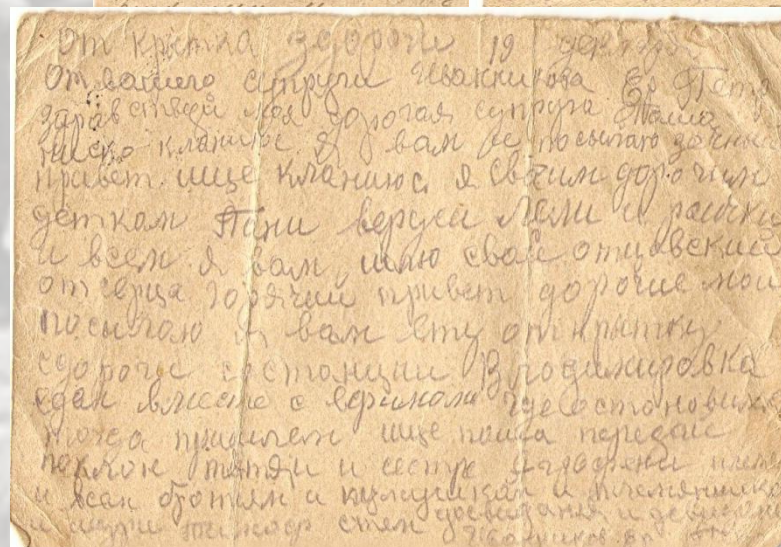 От крытка здороги 19 декабря
От вашего супруга Иванникова Ер Петр
здравствуй моя дорогая супруга Паша
ниско кланиюс я вам и посылаю
привет ище кланиюс я своим дорогим
деткам Тани веруси Лели и раички
и всем я вам шлю свой отцавский
от серца горячий привет дорогие мои
посылаю я вам ету открытку
сдороги состанции Владимировка
едем вместе с ефимом где остановимс
тогда пришлем ище паша передай
поклон тяти и сестре
и всем братям и кумушкам и племянник
стем досвидания